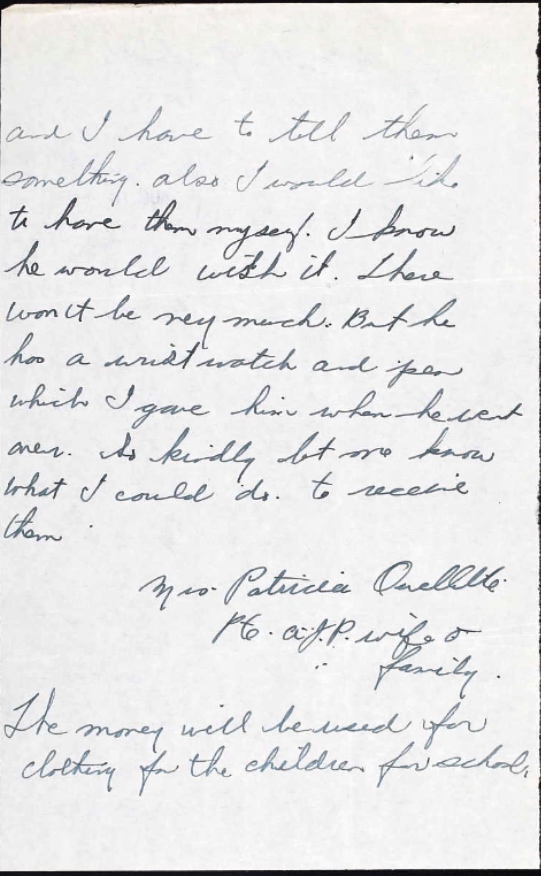 and I have to tell them
something. also I would like
to have them myself. I know
he would wish it. There
won't be very much. But he
has a wrist watch and pen
which I gave him when he went
over. So kindly let me know
what I could do. to receive
them.
Mrs. Patricia Ouellette.
Pte. A.J.P. wife &
" family.
The money will be used for
clothing for the children for school.